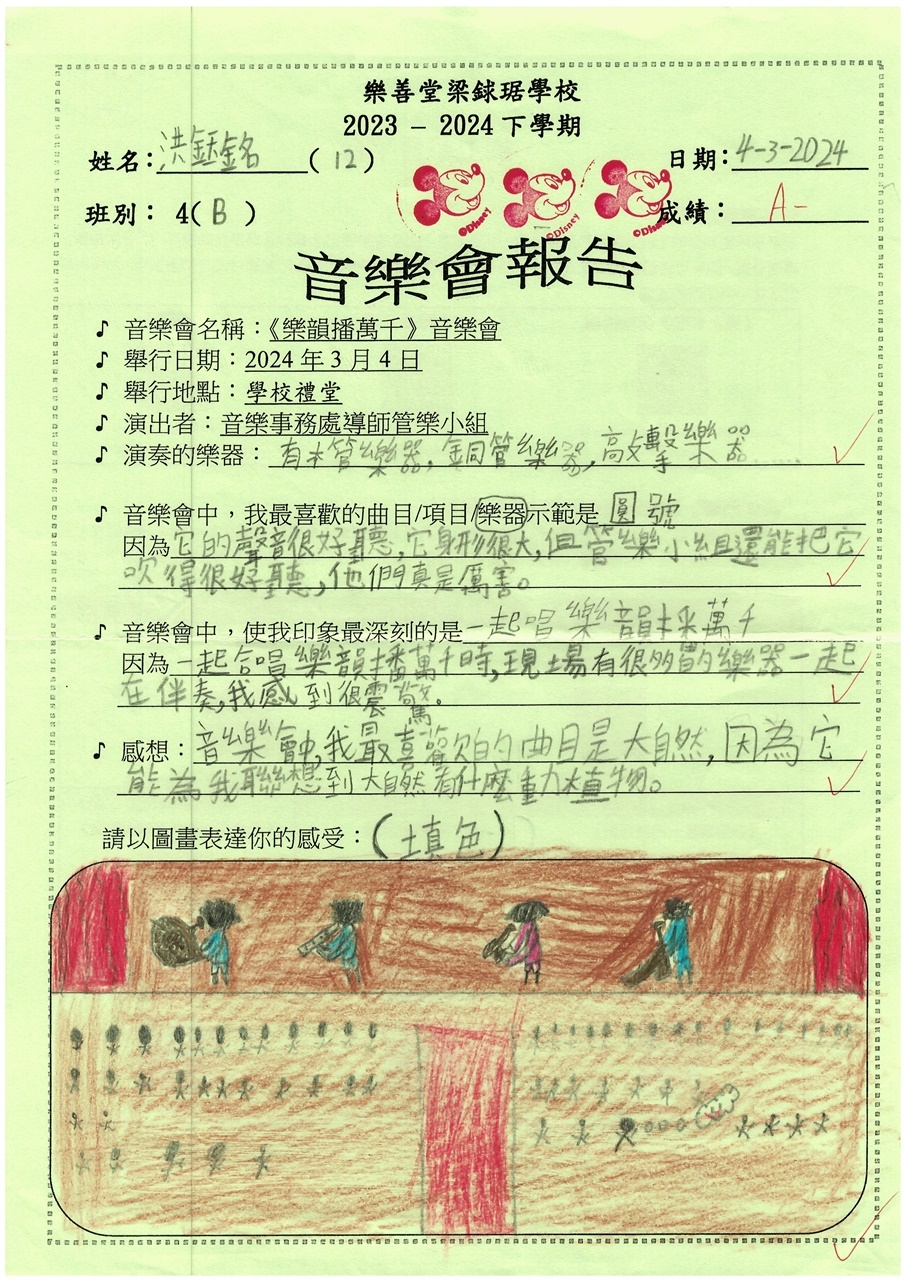 樂善堂梁銶琚學校
2023 – 2024 下學期
姓名：洪鈺銘 (12) 日期：4-3-2024
班別： 4(B) 成績：A-
©Disney ©Disney ©Disney
音樂會報告
♪ 音樂會名稱：《樂韻播萬千》音樂會
♪ 舉行日期：2024 年 3 月 4 日
♪ 舉行地點：學校禮堂
♪ 演出者：音樂事務處導師管樂小組
♪ 演奏的樂器：有木管樂器,銅管樂器,敲擊樂器……
♪ 音樂會中，我最喜歡的曲目/項目/樂器示範是 圓號
因為它的聲音很好聽,它身形很大,但管樂小組還能把它
吹得很好聽,他們真是厲害。
♪ 音樂會中，使我印象最深刻的是一起唱樂韻播萬千
因為一起合唱樂韻播萬千時,現場有很多的樂器一起
在伴奏,我感到很震驚.
♪ 感想：音樂會中,我最喜歡的曲目是大自然,因為它
能為我聯想到大自然有什麼動植物。
請以圖畫表達你的感受：(填色)